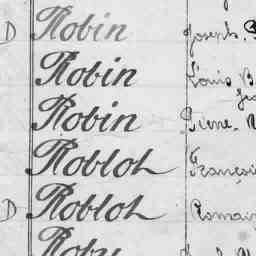 D Robin Joseph
Robin Louis B
Robin Pierre
Roblot François
D Roblot Romain
Roby